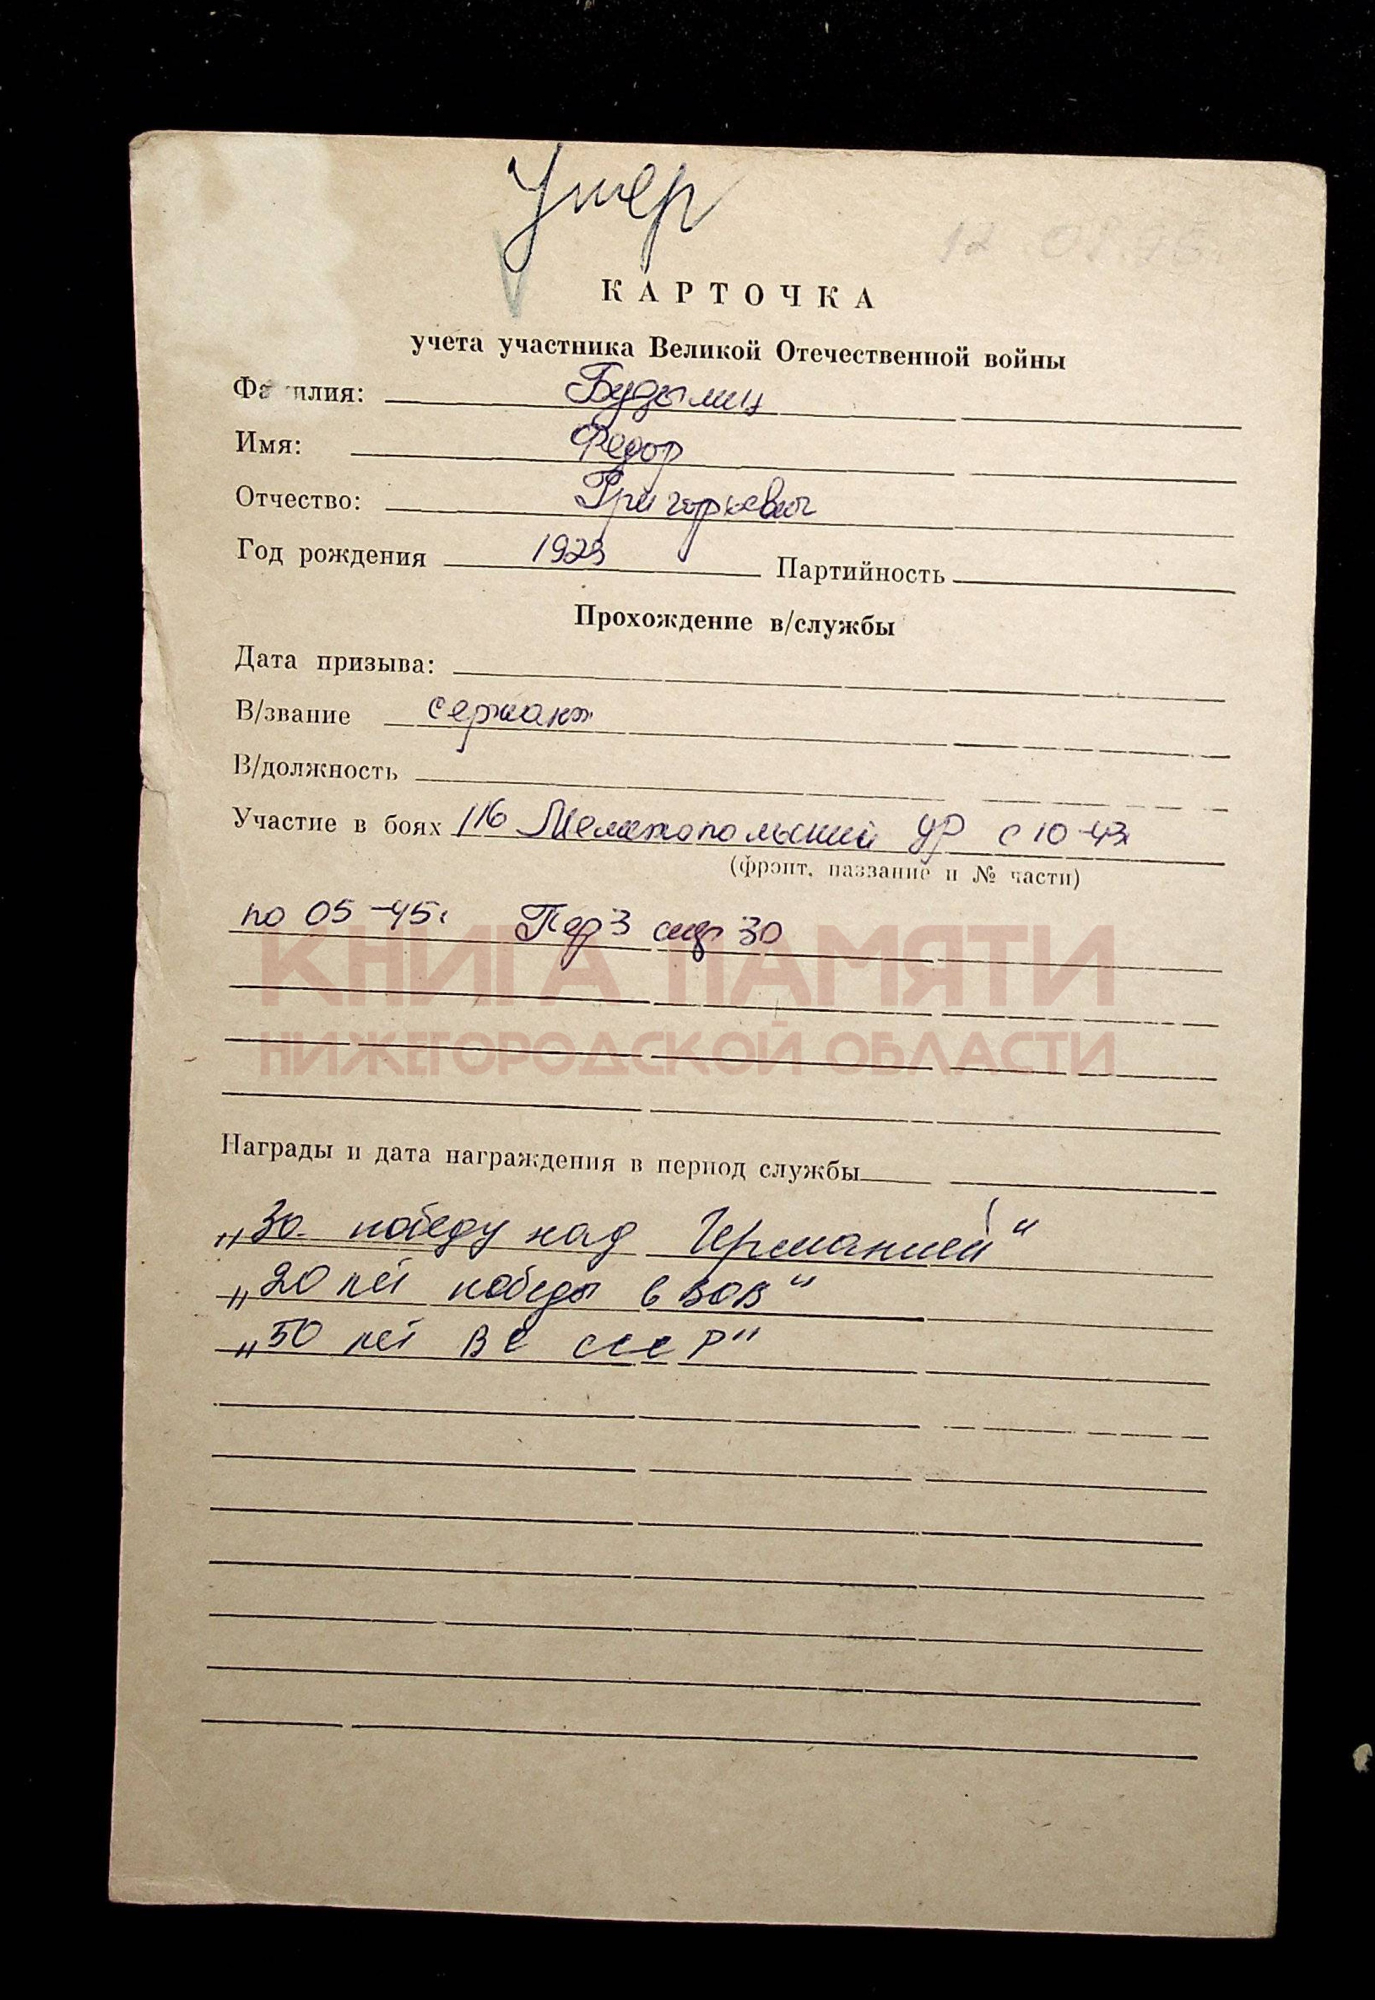 Умер
КАРТОЧКА
учета участника Великой Отечественной войны
Фамилия: Будылин
Имя: Федор
Отчество: Григорьевич
Год рождения 1923 Партийность
Прохождение в/службы
Дата призыва:
В/звание сержант
В/должность
Участие в боях 116 Мелитопольский УР с 10-43г
(фронт, название и № части)
по 05-45г
КНИГА ПАМЯТИ
НИЖЕГОРОДСКОЙ ОБЛАСТИ
Награды и дата награждения в период службы
„За победу над Германией“
„20 лет победы в ВОВ“
„50 лет ВС СССР“